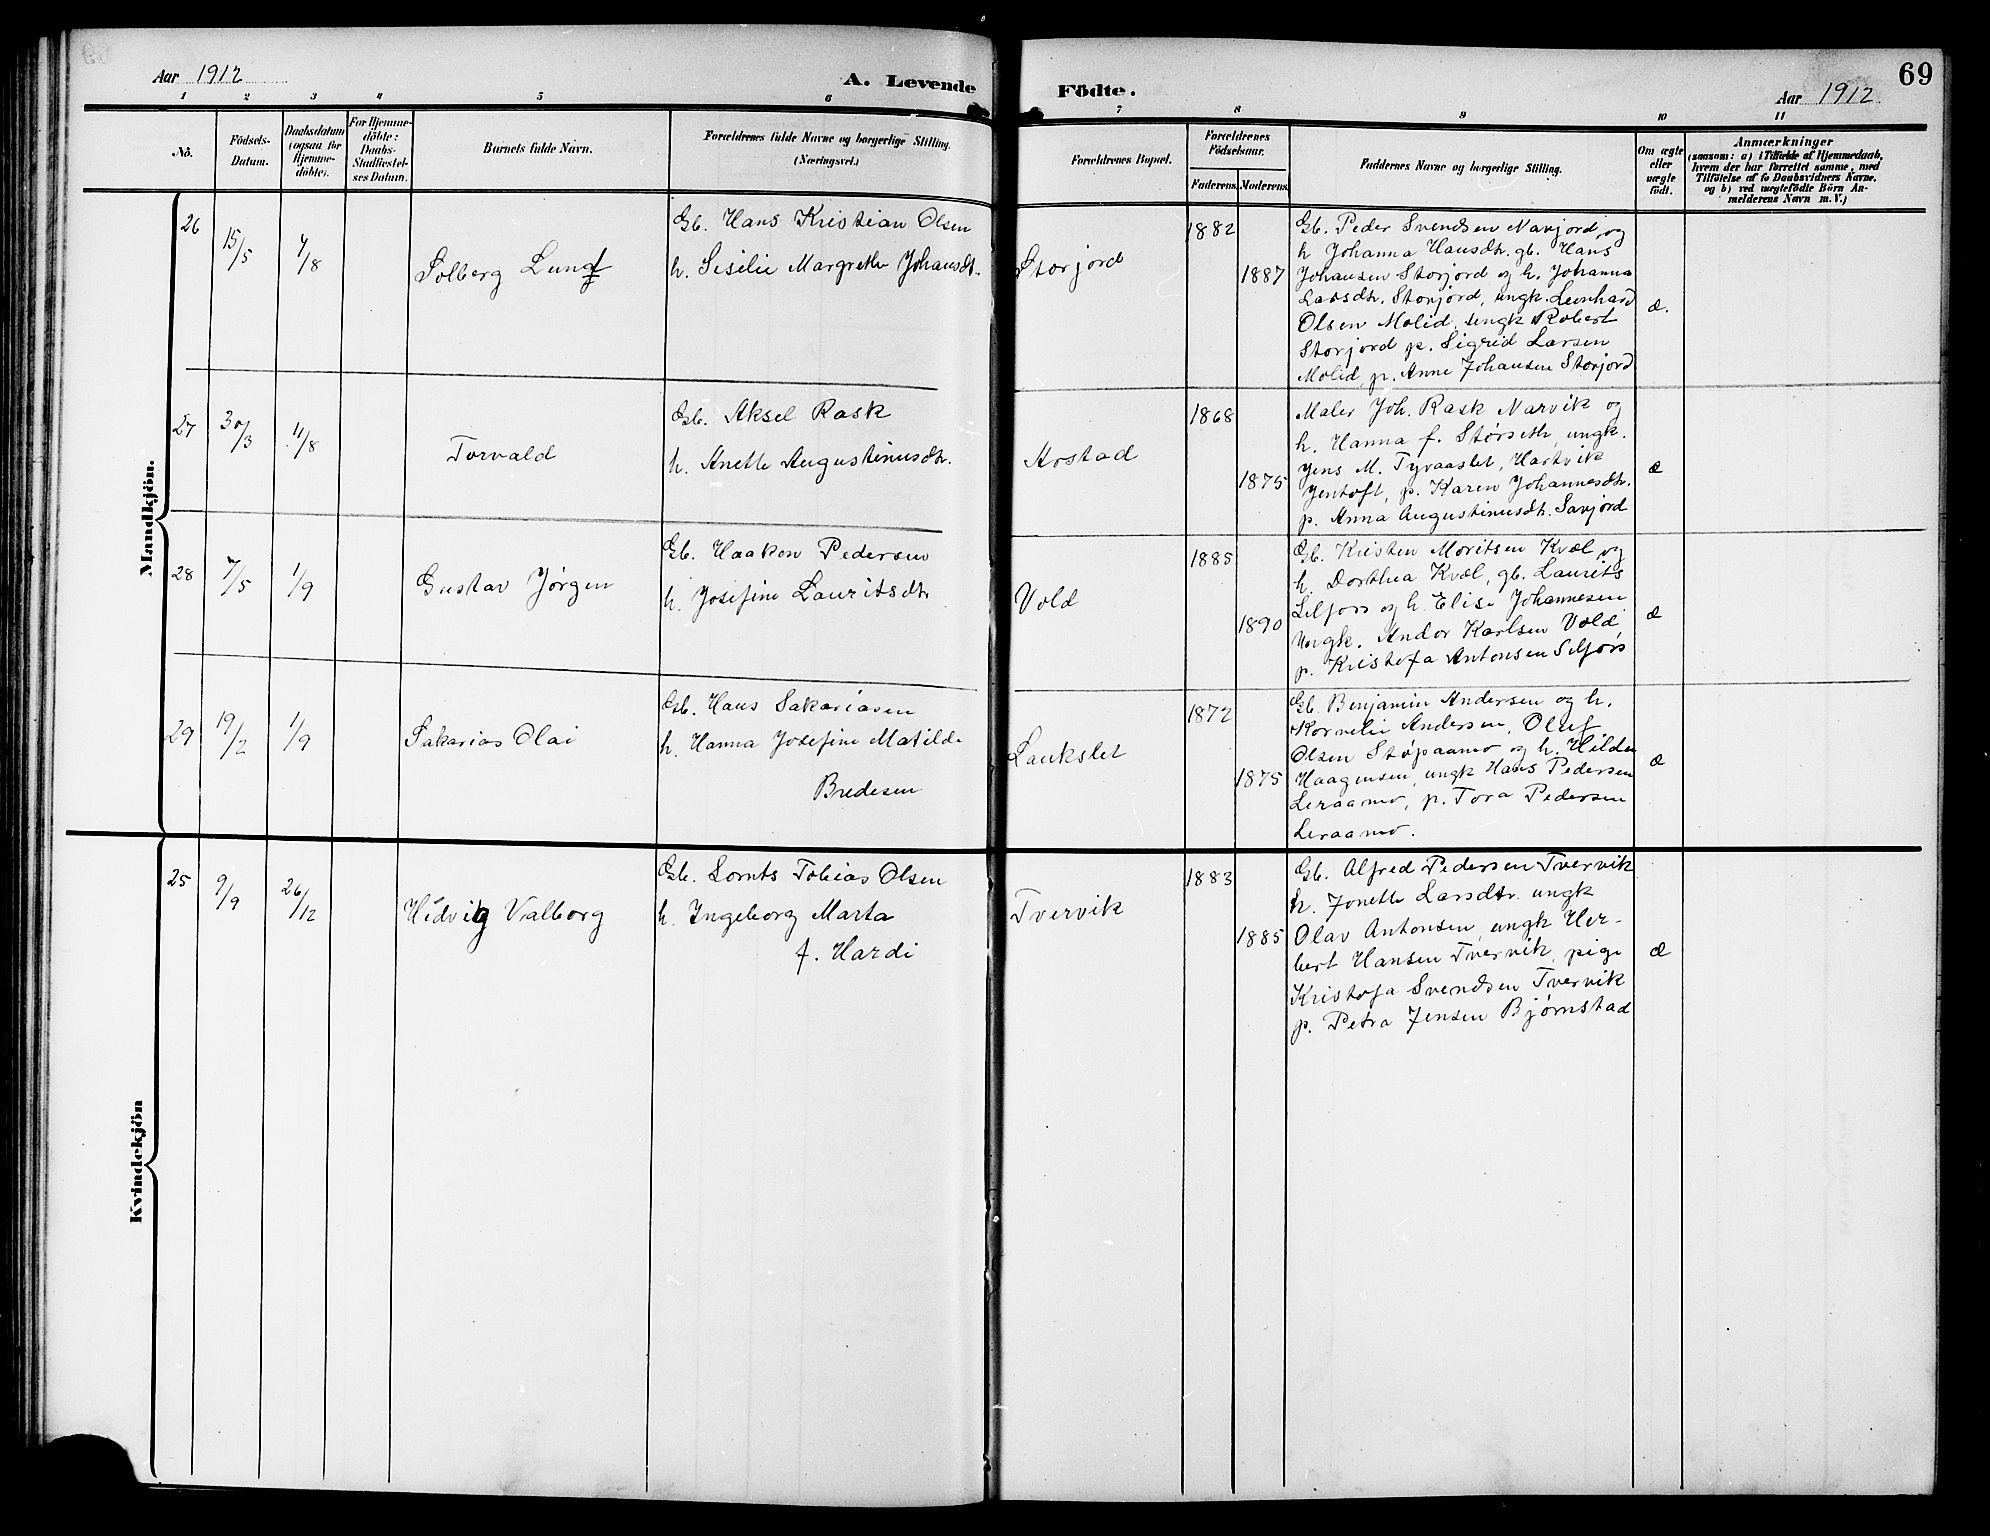 69
Aar 1912
A. Levende Födte.
Aar 1912
1 2 3 4 5 6 7 8 9 10 11
Nö.
Födsels-
Datum.
Daabsdatum
(ogsaa for
Hjemme-
döbte).
For Hjemme-
döbte:
Daabs-
Stadfæstel-
ses Datum.
Barnets fulde Navn.
Forældrenes fulde Navne og borgerlige Stilling.
(Næringsvei.)
Forældrenes Bopæl.
Forældrenes
Födselsaar.
Faderens. Moderens.
Faddernes Navne og borgerlige Stilling.
Om ægte
eller
uægte
födt.
Anmærkninger
(saasom: a) i Tilfælde af Hjemmedaab,
hvem der har forrettet samme, med
Tilföielse af to Daabsvidners Navne,
og b) ved uægtefödte Börn An-
melderens Navn m. V.)
Mandkjön.
26
15/5
4/8
Solberg Lung
Gb. Hans Kristian Olsen
h. Siselie Margrethe Johansdt.
Storjord
1882
1887
Gb. Peder Svendsen Navjord og
h Johanna Hansdtr. gb. Hans
Johansen Storjord og h. Johanna
Larsdtr. Storjord, ungk. Leonhard
Olsen Molid, ungk Robert
Storjord p. Sigrid Larsen
Molid, p. Anne Johansen Storjord
æ.
27
30/3
11/8
Torvald
Gb. Aksel Rask
h. Anette Augustinusdtr.
Arstad
1868
1875
Maler Joh. Rask Narvik og
h. Hanna f. Størseth, ungk.
Jens M. Tyraaslet, Hartvik
Jentoft, p. Karen Johannesdtr.
p. Anna Augustinusdtr. Savjord
æ
28
7/5
1/9
Gustav Jørgen
Gb. Haakon Pedersen
h. Josefine Lauritsdtr
Vold
1885
1890
Gb. Kristen Moritsen Kvæl og
h. Dorthea Kvæl, gb. Laurits
Selfors og h. Elise Johannesen
Ungk. Andor Karlsen Vold
p. Kristofa Antonsen Selfors
æ
29
19/2
1/9
Sakarias Olai
Gb. Hans Sakariasen
h. Hanna Josefine Matilde
Bredesen
Laukslet
1872
1875
Gb. Benjamin Andersen og h.
Kornelie Andersen, Oluf
Olsen Støpaamo og h. Hilda
Haagensen, ungk Hans Pedersen
Leraamo, p. Tora Pedersen
Leraamo.
æ
Kvindekjön
25
9/9
26/12
Hedvig Valborg
Gb. Lornts Tobias Olsen
h. Ingeborg Marta
f. Hardi
Tvervik
1883
1885
Gb. Alfred Pedersen Tvervik
h. Jonette Larsdtr. ungk
Olav Antonsen, ungk Her-
bert Hansen Tvervik, pige
Kristofa Svendsen Tvervik
p. Petra Jensen Bjørnstad
æ